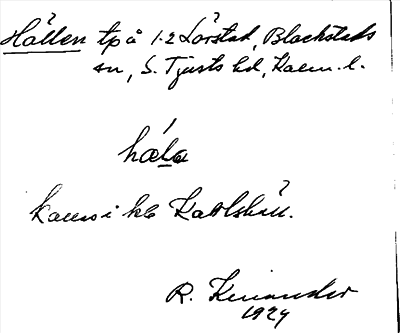 Hällen tp å 1-2 Lörstad, Blackstads
sn, S. Tjusts hd, Kalm. l.
hǽla
kallas i kb Kattshäll.
R. Kinander
1929